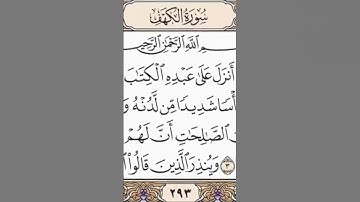 سُورَةُ الْكَهْفِ
ـمِ اللَّهِ الرَّحْمَٰنِ الرَّحِيمِ
أَنزَلَ عَلَىٰ عَبْدِهِ الْكِتَابَ
ـأْسًا شَدِيدًا مِّن لَّدُنْهُ وَ
الصَّالِحَاتِ أَنَّ لَهُمْ
٣ وَيُنذِرَ الَّذِينَ قَالُوا
٢٩٣